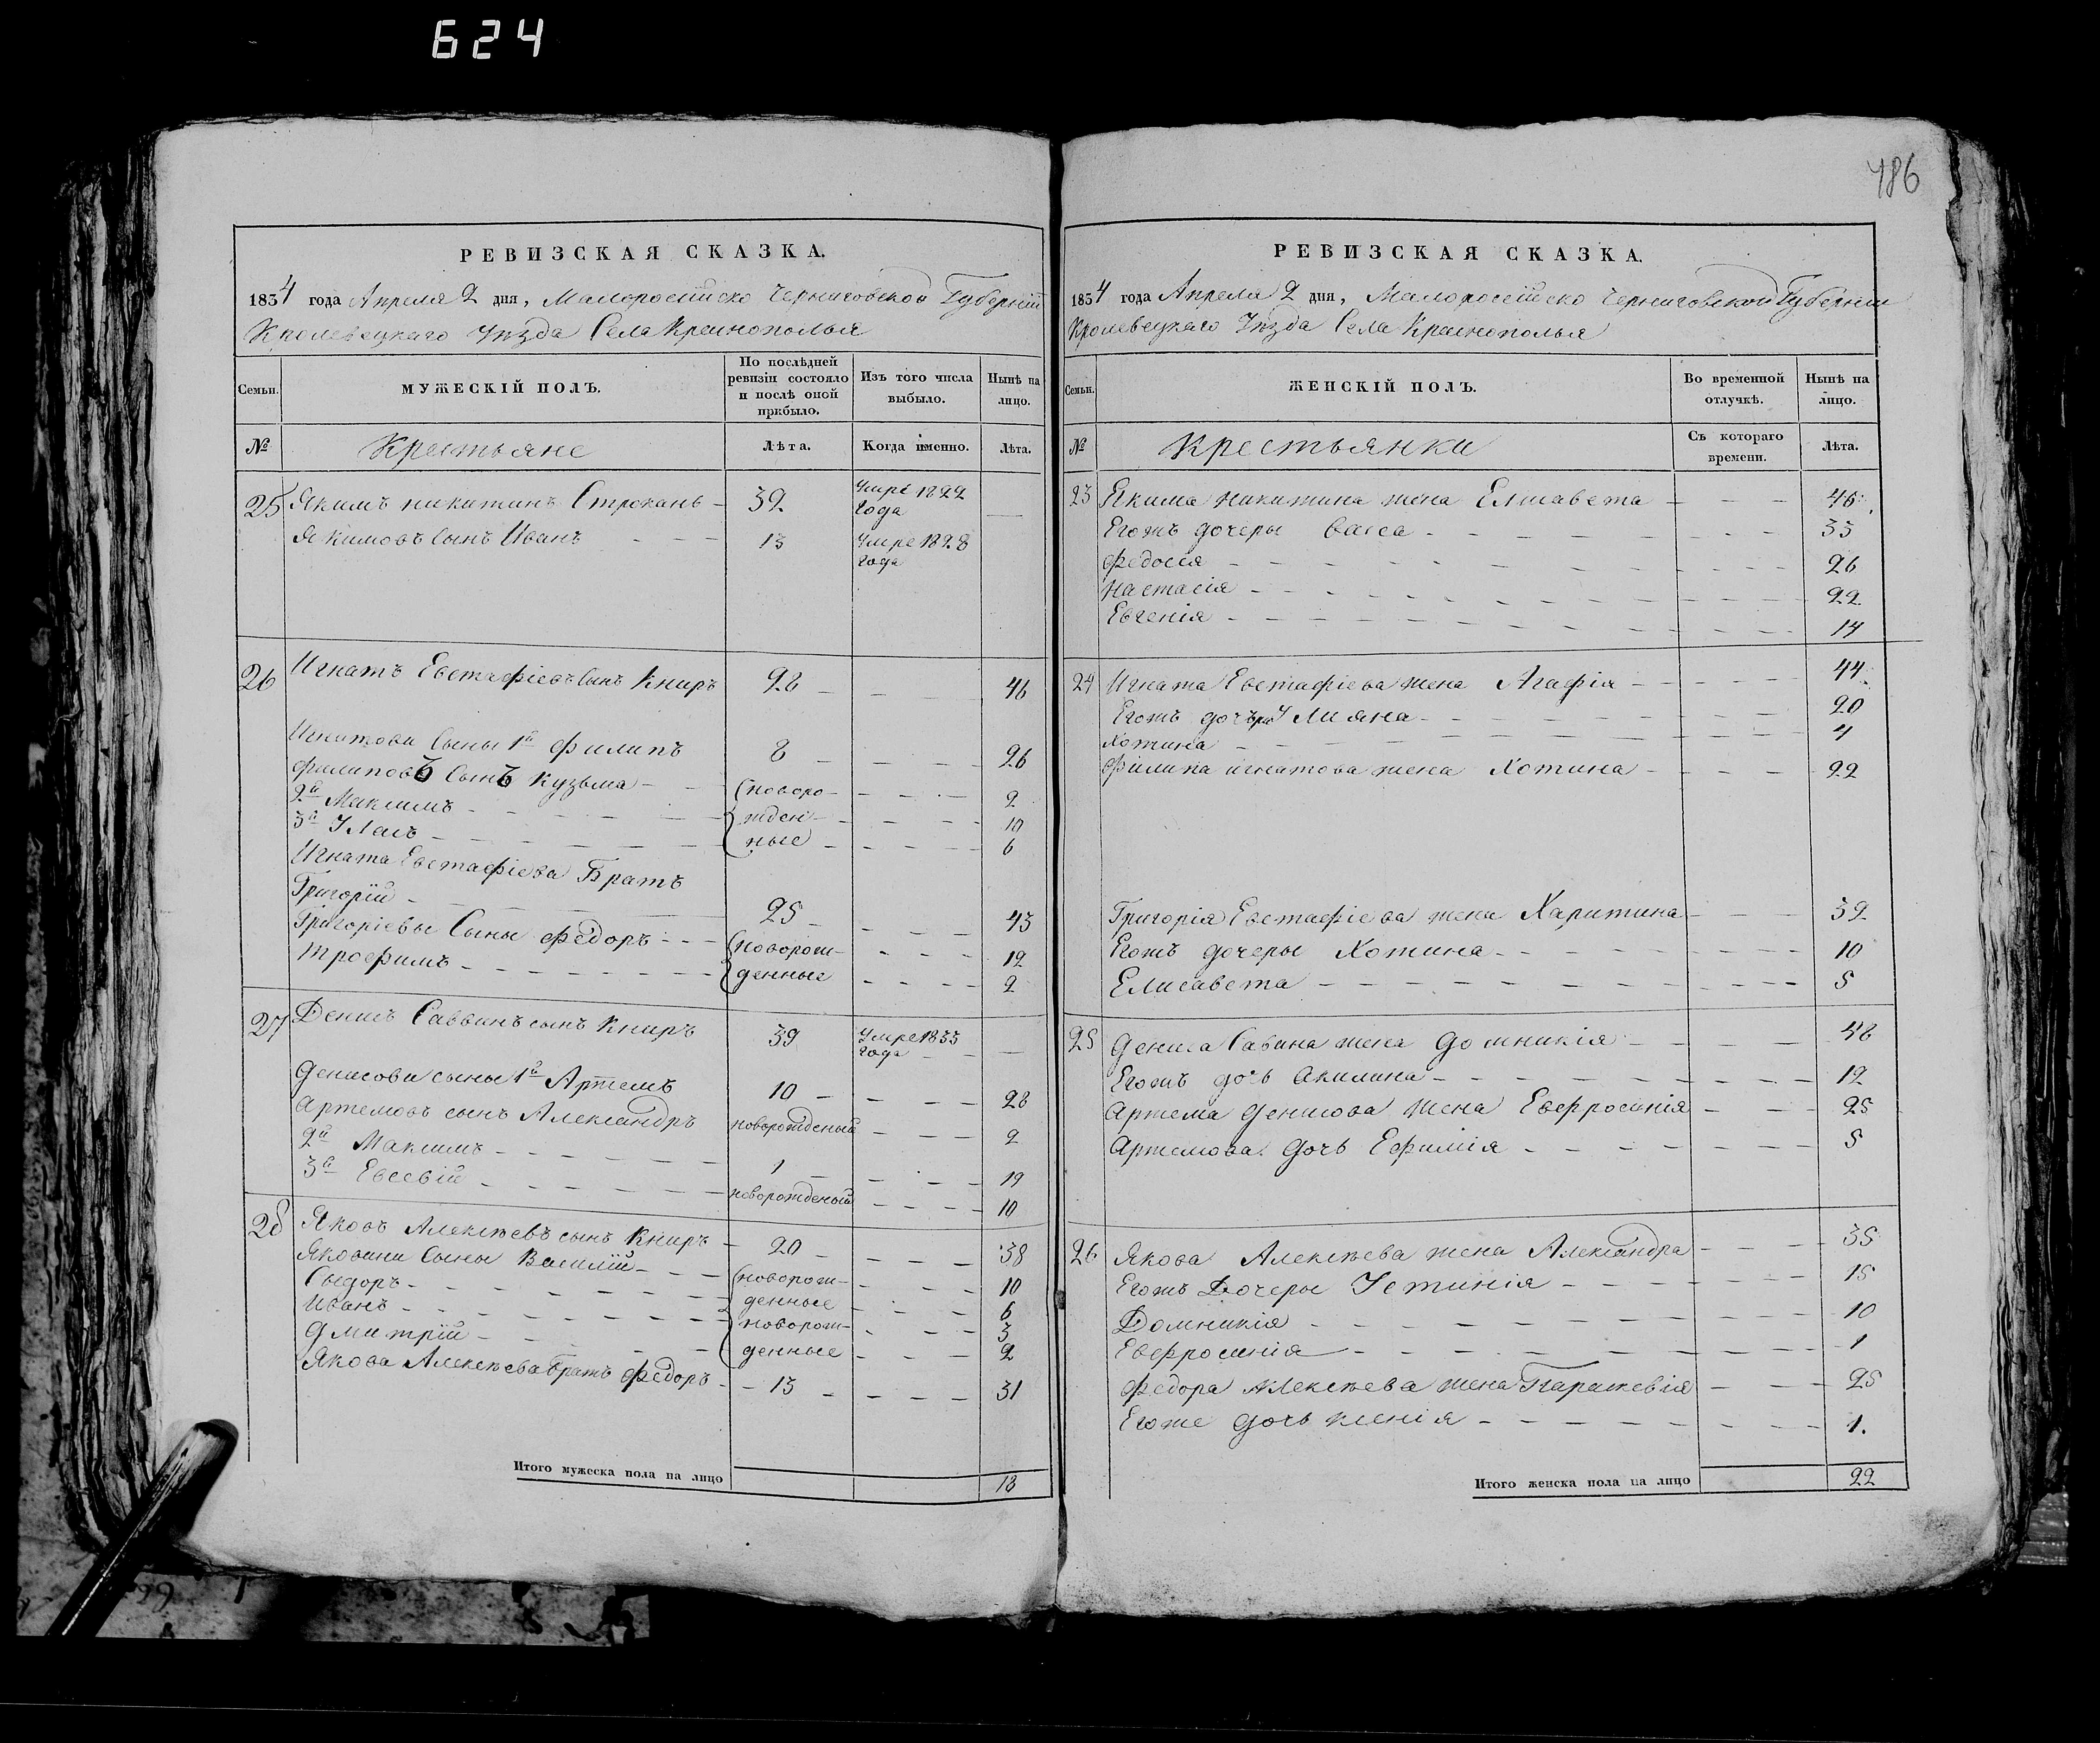 624
486
РЕВИЗСКАЯ СКАЗКА.
1834 года Апреля 2 дня, Малоросійско Черниговской Губерніи
Кролевецкаго Уѣзда Села Краснополья
Семьи. МУЖЕСКІЙ ПОЛЪ. По послѣдней ревизіи состояло и послѣ оной прибыло. Изъ того числа выбыло. Нынѣ на лицо.
№ Крестьяне Лѣта. Когда именно. Лѣта.
25 Якимъ никитинъ Строкань 32 Умре 1822 года
Якимовъ Сынъ Иванъ 13 Умре 1828 года
26 Игнатъ Евстафіевъ Сынъ Книръ 28 46
Игнатови Сыны 1й Филипъ 8 26
филиповъ Сынъ Кузьма (новоро- 2
2й Максимъ жден- 10
3й Уласъ ные 6
Игната Евстафіева Братъ
Григорій 25 43
Григоріевы Сыны Федоръ (новорож- 12
Трофимъ денные 2
27 Денисъ Саввинъ сынъ Книръ 39 Умре 1833 года
Денисови сыны 1й Артемъ 10 28
Артемовъ сынъ Александръ новорожденый 2
2й Максимъ 1 19
3й Евсевій новорожденый 10
28 Яковъ Алексѣевъ сынъ Книръ 20 38
Яковини Сыны Василій (новорож- 10
Сыдоръ денные 6
Иванъ (новорож- 3
Дмитрій денные 2
Якова Алексѣева братъ Федоръ 13 31
Итого мужеска пола на лицо 18
РЕВИЗСКАЯ СКАЗКА.
1834 года Апреля 2 дня, Малоросійско Черниговской Губерніи
Кролевецкаго Уѣзда Села Краснополья
Семьи. ЖЕНСКІЙ ПОЛЪ. Во временной отлучкѣ. Нынѣ на лицо.
№ Крестьянки Съ котораго времени. Лѣта.
23 Якима никитина жена Елисавета 46
Егожъ дочеры Васса 33
Федосія 26
Настасія 22
Евгенія 14
24 Игната Евстафіева жена Агафія 44
Егожъ дочъри Улияна 20
Хотина 4
Філипа игнатова жена Хотина 22
Григорія Евстафіева жена Харитина 32
Егожъ дочеры Хотина 10
Елисавета 5
25 Дениса Савина жена Домникія 48
Егожъ дочь Акилина 12
Артема Денисова жена Евфросинія 25
Артемова дочь Ефимія 5
26 Якова Алексѣева жена Александра 35
Егожъ Дочеры Устинія 15
Домникія 10
Евфросинія 1
Федора Алексѣева жена Параскевія 25
Егоже дочь ксенія 1.
Итого женска пола на лицо 22